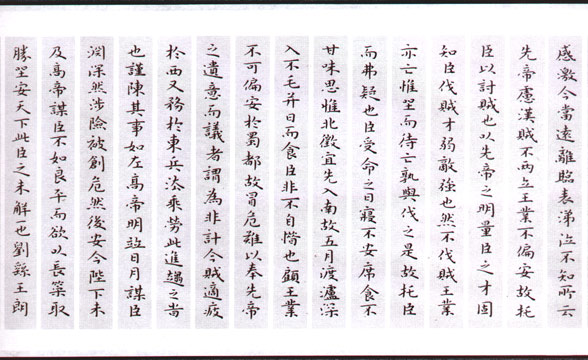 感激今當遠離臨表涕泣不知所云
先帝慮漢賊不兩立王業不偏安故托
臣以討賊也以先帝之明量臣之才固
知臣伐賊才弱敵強也然不伐賊王業
亦亡惟坐而待亡孰與伐之是故托臣
而弗疑也臣受命之日寢不安席食不
甘味思惟北徵宜先入南故五月渡瀘深
入不毛并日而食臣非不自惜也顧王業
不可偏安於蜀都故冒危難以奉先帝
之遺意而議者謂為非計今賊適疲
於西又務於東兵法乘勞此進趨之旹
也謹陳其事如左高帝明並日月謀臣
淵深然涉險被創危然後安今陛下未
及高帝謀臣不如良平而欲以長策取
勝坐安天下此臣之未解一也劉繇王朗